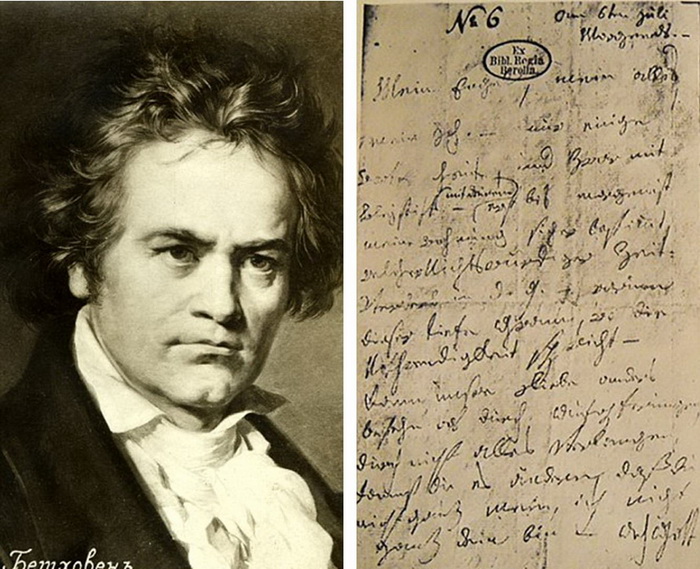 Бетховенъ
№ 6
am 6ten Juli
Morgends. —
Ex
Bibl. Regia
Berolin.
Mein Engel, mein alles
mein Ich. — nur einige
Worte heute, und zwar mit
Bleystift — (mit deinem) erst bis morgen ist
meine Wohnung sicher bestimt
welcher Nichtswürdiger Zeit-
verderb in d. g. — warum
dieser tiefe Gram, wo die
Nothwendigkeit spricht —
Kann unsre Liebe anders
bestehn als durch Aufopferungen
durch nicht alles verlangen
kannst du es ändern, daß du
nicht ganz mein, ich nicht
ganz dein bin — Ach Gott